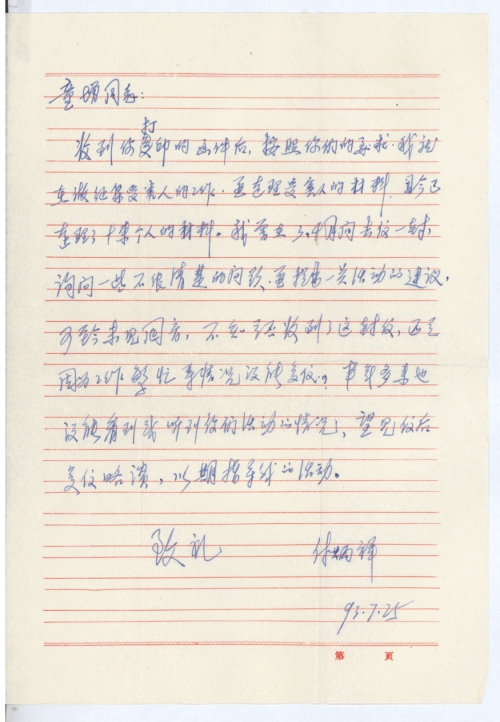 童增同志:
收到你打印的函件后,按照你们的要求,我就
在做征集受害人的工作,并在整理受害人的材料,目今已
整理了十来个人的材料。我曾在3、4月间去信一封,
询问一些不很清楚的问题,并提出一些活动的建议,
可至今未见回音,不知是否收到了这封信,还是
因为工作繁忙等情况没能复信?半年多来也
没能看到或听到你们活动的情况,望见信后
复信略谈,以期指导我的活动。
致礼
付炳祥
93.7.25
第 页